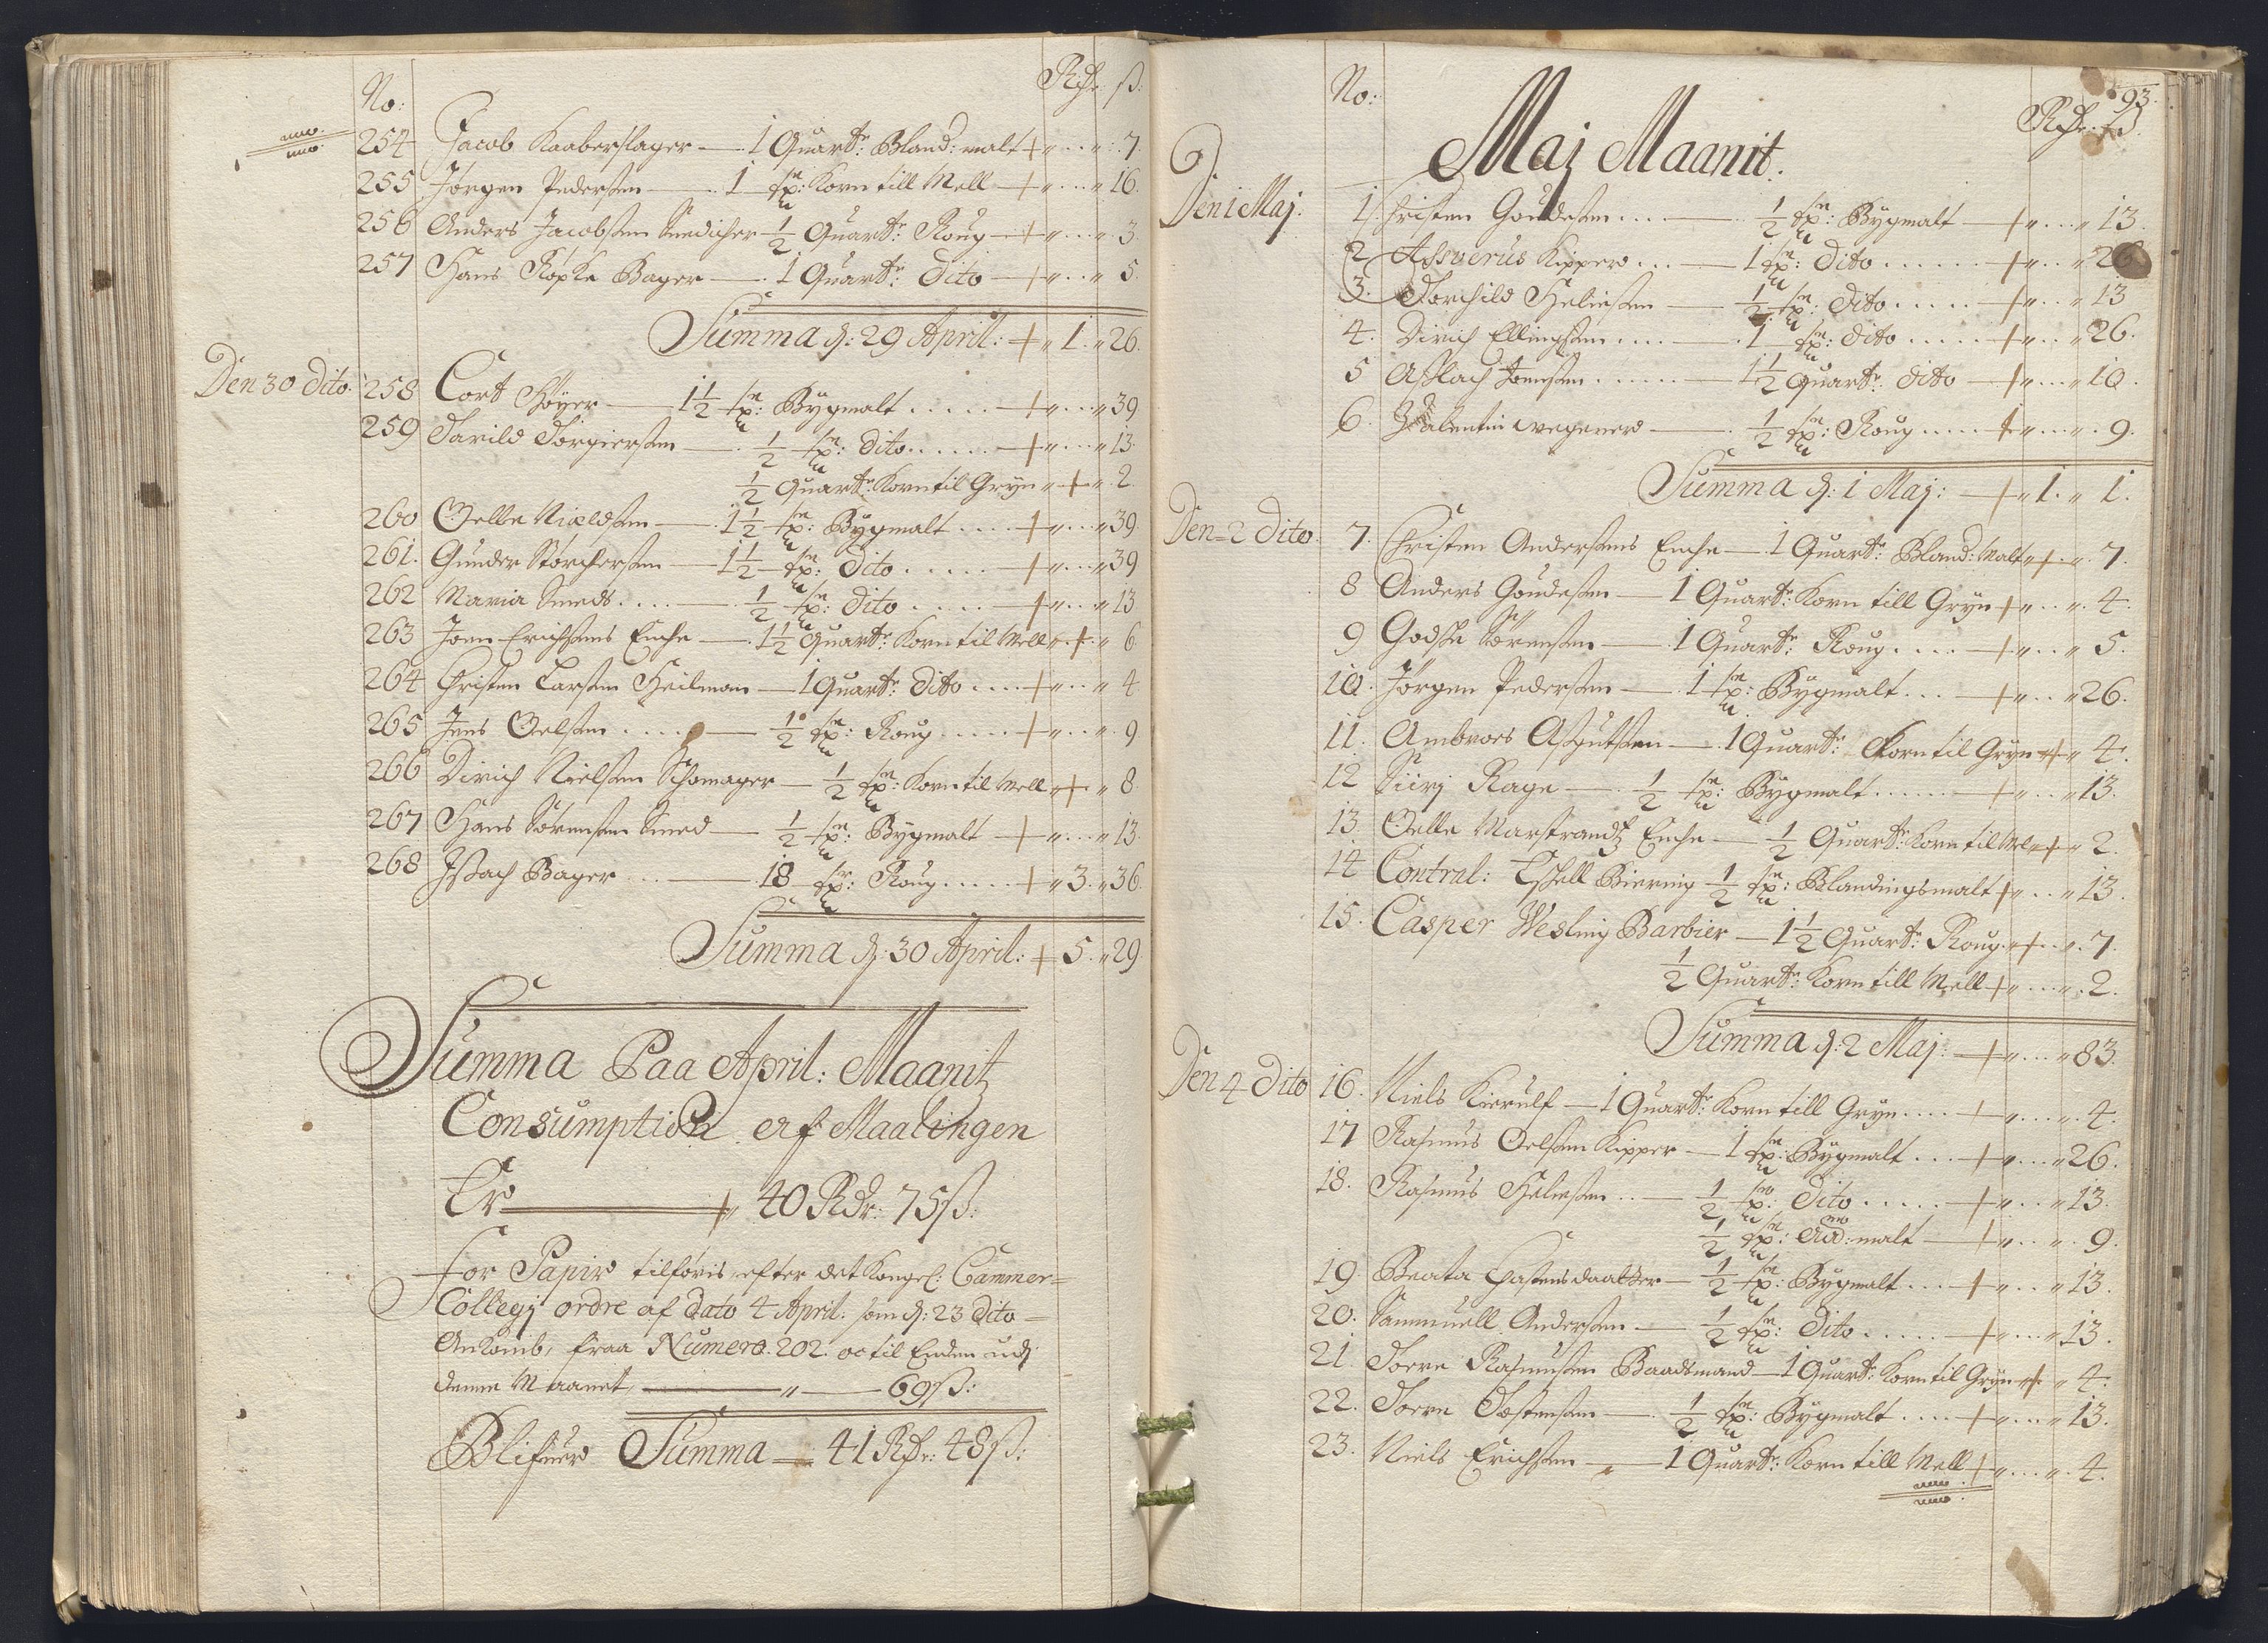 No: Rdr ß:
254 Jacob Kaaberslager — 1 Quart: Bland: malt + „ .. „ 7.
255 Jørgen Pedersen — 1 tp: Korn till Mell + „ ... „ 16.
256 Anders Jacobsen Snedicher ½ Quart: Roug — + „ ... „ 3.
257 Hans Röpke Bager — 1 Quart: dito — + „ ... „ 5.
Summa d: 29 April: + „ 1. „ 26.
Den 30 dito. 258 Cort Høyer — 1½ tp: Bÿgmalt ..... + „ ... „ 39
259 Tarild Torgiersen — ½ tp: dito ...... + „ ... „ 13.
½ Quart: Korn til Grÿn „ + „ 2.
260 Oelle Nieldsen — 1½ tp: Bÿgmalt .... + „ ... „ 39.
261. Gunder Storchersen — 1½ tp: dito ..... + „ ... „ 39
262 Maria Smeds .... — ½ tp: dito ..... + „ ... „ 13
263 Joen Erichsens Enche — 1½ Quart: Korn til Mell „ + „ 6
264 Christen Larsen Heilman — 1 Quart: dito .... + „ .. „ 4
265 Jens Oelsen ..... — ½ tp: Roug ..... + „ ... „ 9
266 Dirich Nielsen Schomager — ½ tp: Korn til Mell „ + „ 8.
267 Hans Sørensen Smed — ½ tp: Bÿgmalt — + „ .... „ 13.
268 Issach Bager ... — 18 tp: Roug ..... + „ 3. „ 36.
Summa d: 30 April: + 5. „ 29
Summa Paa April: Maanitz
Consumption af Maalingen
Er — + „ 40 Rdr: 75 ß:
For Papir tilføris efter det Kongel: Cammer=
Collegj ordre af Dato 4 April: som d: 23 Dito =
Ankomb, fraa Numero. 202. oc til Enden udj
denne Maanet, — „ — 69 ß:
Blifuer Summa — 41 Rdr: 48 ß:
93.
No: Rdr: ß.
Maj Maanit.
Den 1 Maj. 1. Christen Goudesen .... — ½ tp: Bÿgmalt — + „ .... „ 13.
2 Assverus Kipper ... — 1 tp: dito ...... + „ .... „ 26
3. Torchild Helissen — ½ tp: dito ..... + „ ... „ 13
4. Dirich Ellingsen ..... — 1 tp: dito ..... + „ ... „ 26.
5 Asslach Joensen ...... — 1½ Quart: dito — + „ .... „ 10.
6. Valentin Wegener — ½ tp: Roug ..... + „ .... „ 9.
Summa d: 1 Maj: — + „ 1. „ 1.
Den 2 Dito. 7. Christen Andersens Enche — 1 Quart: Bland: Malt „ + „ 7.
8 Anders Goudesen — 1 Quart: Korn till Grÿn + „ ... „ 4.
9 Godske Sørensen — 1 Quart: Roug .... — + „ ... „ 5.
10. Jørgen Pedersen — 1 tp: Bÿgmalt ... — + „ ... „ 26.
11. Ambroes Asgutsen — 1 Quart: Korn til Grÿn + „ 4.
12 Siirj Rage — ½ tp: Bÿgmalt ..... — + „ ... „ 13.
13. Oelle Marstrandz Enche — ½ Quart: Korn til Ml + „ 2.
14 Contral: Eskell Biering ½ tp: Blandingsmalt + „ ... „ 13.
15. Casper Wesling Barbier — 1½ Quart: Roug. + „ 7.
½ Quart: Korn till Mell + „ .... „ 2.
Summa d: 2 Maj: — + „ .... „ 83.
Den 4 Dito 16. Niels Kierulf — 1 Quart: Korn till Grÿn .... + „ .... „ 4.
17 Rasmus Oelsen Kipper — 1 tp: Bÿgmalt .... + „ .... „ 26.
18. Rasmus Helissen .. — ½ tp: Dito ..... + „ .... „ 13.
½ tp: malt — + „ .... „ 9.
19. Beata Castensdaatter — ½ tp: Bÿgmalt .... + „ .... „ 13.
20. Sammuell Andersen — ½ tp: Dito ..... — + „ .... „ 13.
21. Torre Rasmusen Baadsmand — 1 Quart: Korn til Grÿn + „ 4.
22. Torre Tostensen — ½ tp: Bÿgmalt .... + „ .... „ 13.
23. Niels Erichsen — 1 Quart: Korn till Mell + „ .... „ 4.